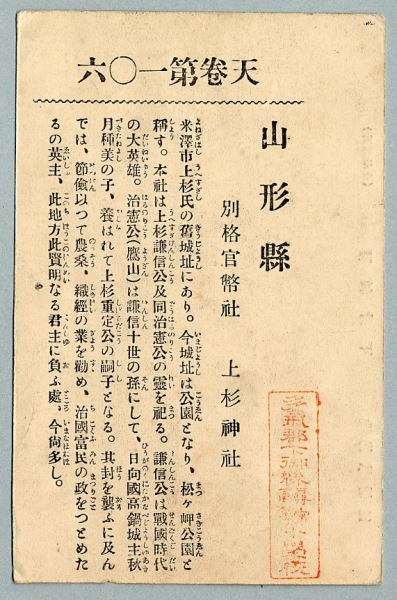 天卷第一〇六
山形縣
別格官幣社　上杉神社
米澤市上杉氏の舊城址にあり。今城址は公園となり、松ヶ岬公園と
稱す。本社は上杉謙信公及同治憲公の靈を祀る。謙信公は戰國時代
の大英雄。治憲公(鷹山)は謙信十世の孫にして、日向國高鍋城主秋
月種美の子、養はれて上杉重定公の嗣子となる。其封を襲ふに及ん
では、節儉以つて農桑、織經の業を勸め、治國富民の政をつとめた
るの英主、此地方此賢明なる君主に負ふ處、今尙多し。